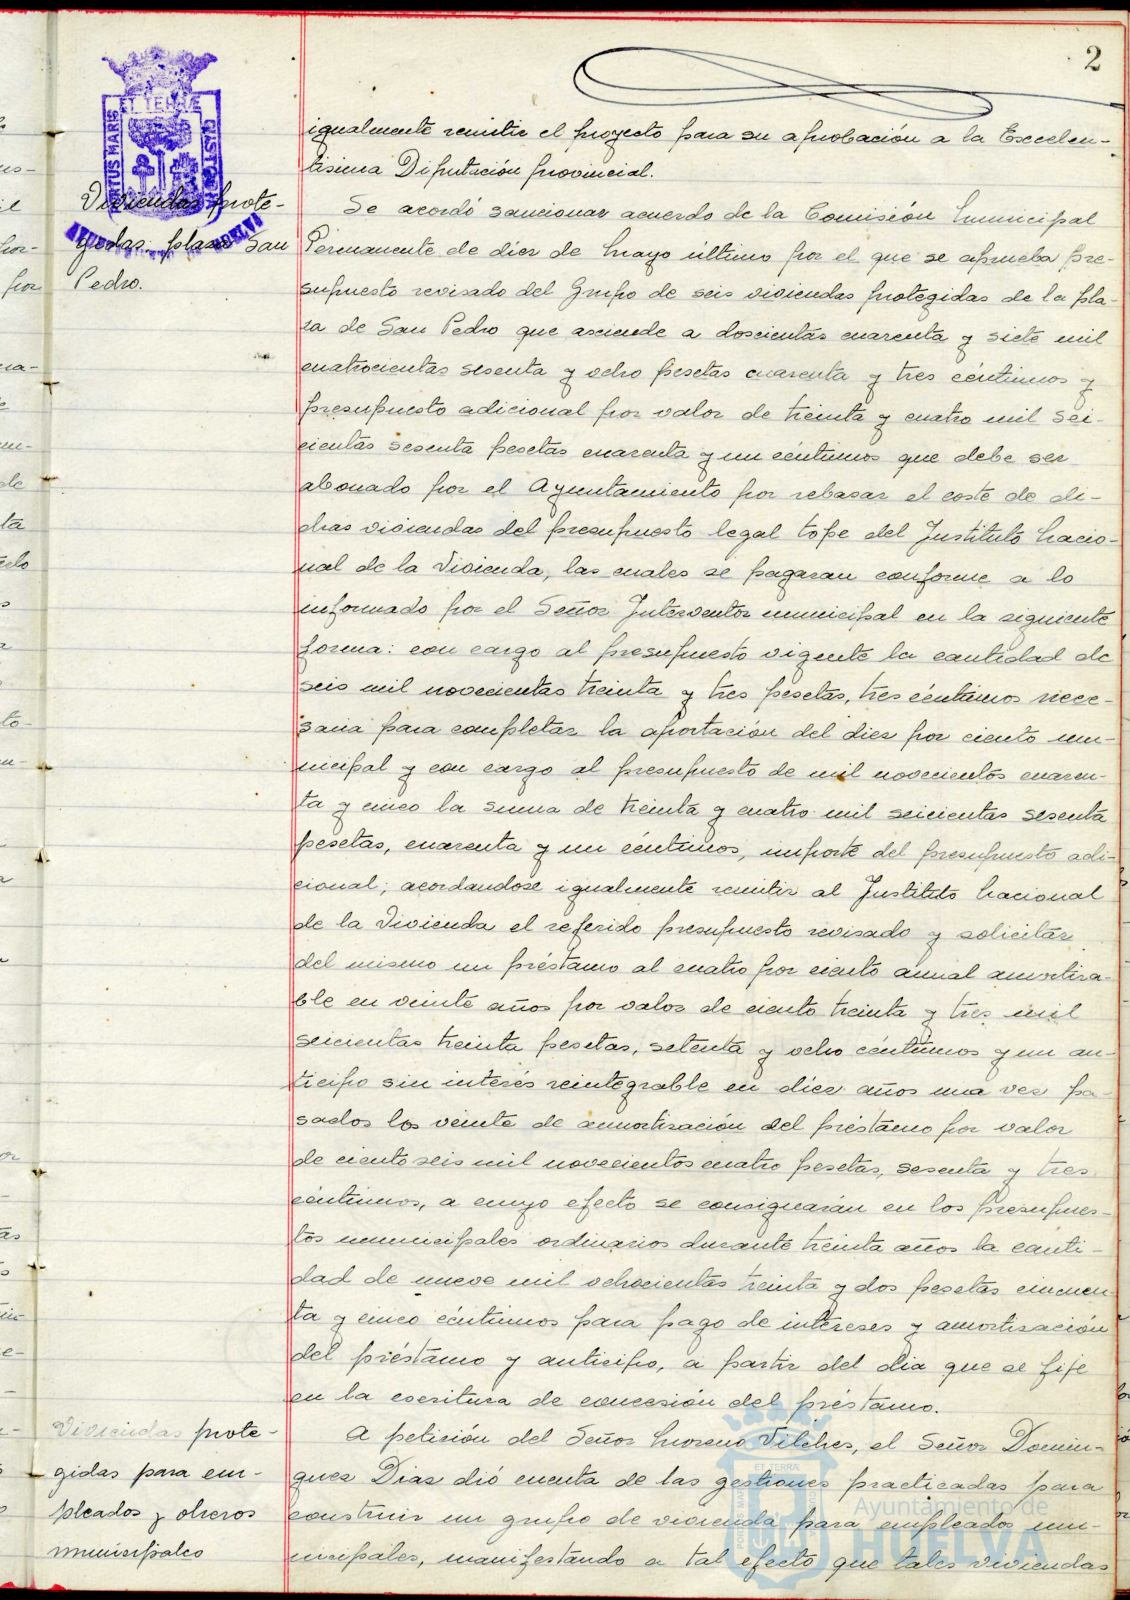 2
igualmente remitir el proyecto para su aprobación a la Excelen-
tisima Diputación provincial.
Viviendas prote-
gidas plaza San
Pedro.
Se acordó sancionar acuerdo de la Comisión Municipal
Permanente de diez de Mayo último por el que se aprueba pre-
supuesto revisado del Grupo de seis viviendas protegidas de la pla-
za de San Pedro que asciende a doscientas cuarenta y siete mil
cuatrocientas sesenta y ocho pesetas cuarenta y tres céntimos y
presupuesto adicional por valor de treinta y cuatro mil sei-
cientas sesenta pesetas cuarenta y un céntimos que debe ser
abonado por el Ayuntamiento por rebasar el coste de di-
chas viviendas del presupuesto legal tope del Instituto Nacio-
nal de la Vivienda, las cuales se pagaran conforme a lo
informado por el Señor Interventor municipal en la siguiente
forma: con cargo al presupuesto vigente la cantidad de
seis mil novecientas treinta y tres pesetas, tres céntimos nece-
saria para completar la aportación del diez por ciento mu-
nicipal y con cargo al presupuesto de mil novecientos cuaren-
ta y cinco la suma de treinta y cuatro mil seicientas sesenta
pesetas, cuarenta y un céntimos, importe del presupuesto adi-
cional; acordandose igualmente remitir al Instituto Nacional
de la Vivienda el referido presupuesto revisado y solicitar
del mismo un préstamo al cuatro por ciento anual amortiza-
ble en veinte años por valor de ciento treinta y tres mil
seicientas treinta pesetas, setenta y ocho céntimos y un an-
ticipo sin interés reintegrable en diez años una vez pa-
sados los veinte de amortización del préstamo por valor
de ciento seis mil novecientos cuatro pesetas, sesenta y tres
céntimos, a cuyo efecto se consignarán en los Presupues-
tos municipales ordinarios durante treinta años la canti-
dad de nueve mil ochocientas treinta y dos pesetas cincuen
ta y cinco céntimos para pago de intereses y amortización
del préstamo y anticipo, a partir del dia que se fije
en la escritura de concesión del préstamo.
Viviendas prote-
gidas para em-
pleados y obreros
municipales
A petición del Señor Moreno Vilches, el Señor Domin-
guez Diaz dió cuenta de las gestiones practicadas para
construir un grupo de vivienda para empleados mu-
nicipales, manifestando a tal efecto que tales viviendas
ET TERRÆ
Ayuntamiento de
HUELVA